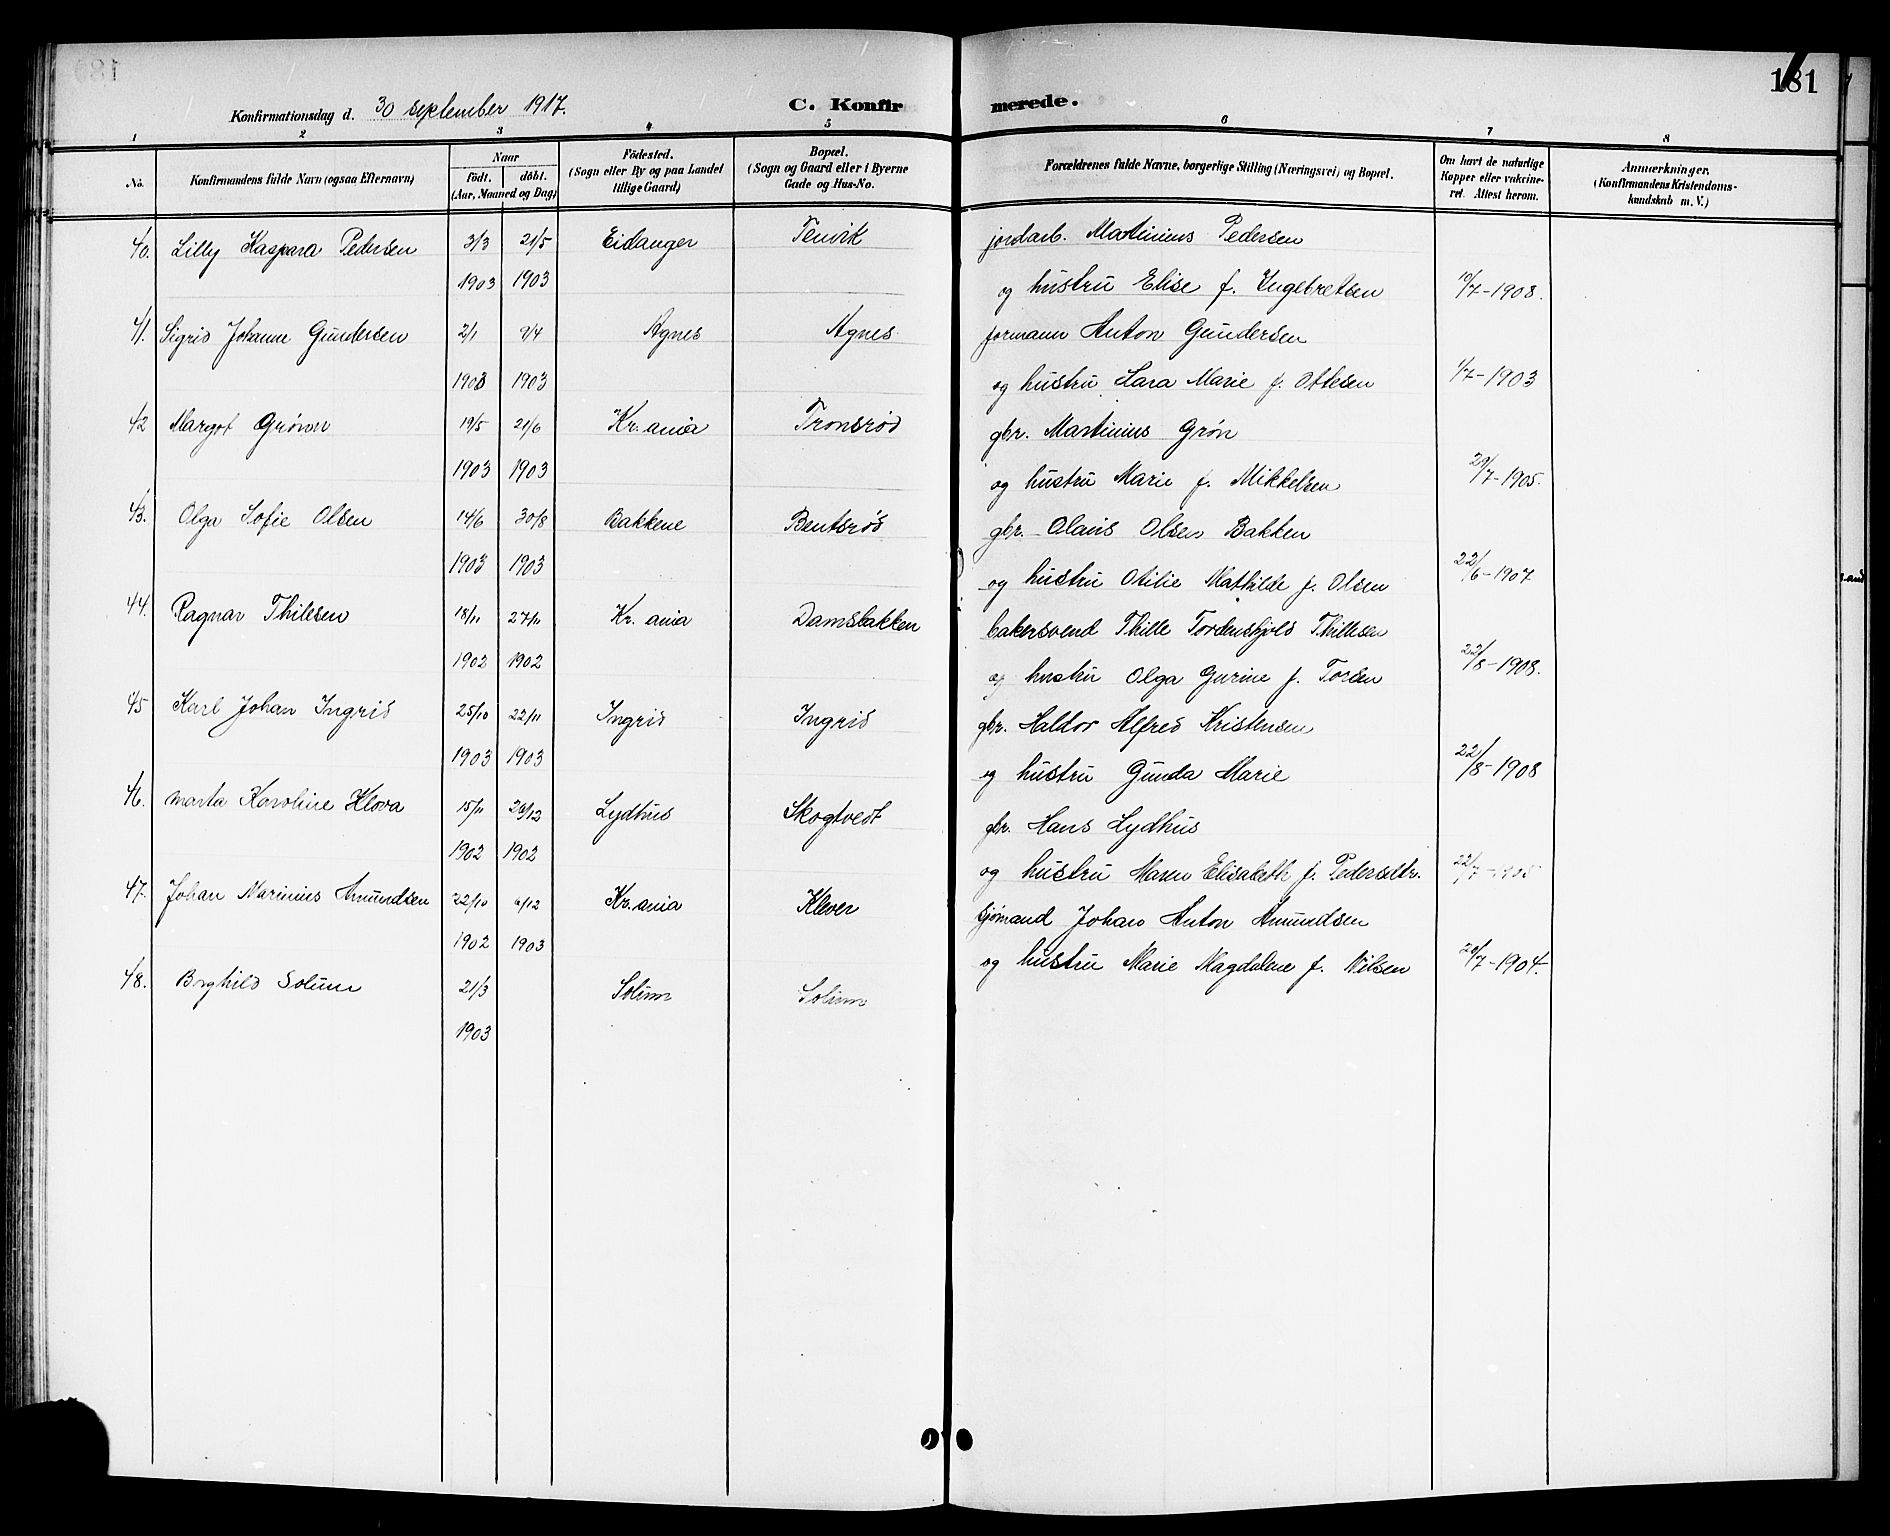 181
Konfirmationsdag d. 30 september 1917. C. Konfirmerede.
1 2 3 4 5 6 7 8
No. Konfirmandens fulde Navn (ogsaa Efternavn) Naar født. døbt. (Aar, Maaned og Dag) Fødested. (Sogn eller By og paa Landet tillige Gaard) Bopæl. (Sogn og Gaard eller i Byerne Gade og Hus-No. Forældrenes fulde Navne, borgerlige Stilling (Næringsvei) og Bopæl. Om havt de naturlige Kopper eller vakcineret. Attest herom. Anmærkninger. (Konfirmandens Kristendomskundskab m. V.)
40. Lilly Kaspara Pedersen 3/3 21/5 Eidanger Tenvik jordarb. Martinius Pedersen
1903 1903 og hustru Elise f. Ingebretsen 10/7-1908.
41. Sigrid Johanne Gundersen 2/1 9/4 Agnes Agnes formann Anton Gundersen
1903 1903 og hustru Lara Marie f. Ottesen 1/7-1903
42 Margot Grønn 19/5 21/6 Kr.ania Tronsrød gbr. Martinius Grøn
1903 1903 og hustru Marie f. Mikkelsen 29/7-1905.
43. Olga Sofie Olsen 14/6 30/8 Bakkene Bentsrød gbr. Olaus Olsen Bakken
1903 1903 og hustru Otilie Mathilde f. Olsen 22/6-1907
44. Ragnar Thillesen 18/11 27/11 Kr.ania Damsbakken bakersvend Thille Tordenskjold Thillesen
1902 1902 og hustru Olga Gurine f. Torsen 22/8-1908.
45 Karl Johan Ingrid 25/10 22/11 Ingrid Ingrid gbr. Haldor Alfred Kristensen
1903 1903 og hustru Gunda Marie 22/8-1908
46. Marta Karoline Klova 15/11 26/12 Lydhus Skogtvedt gbr. Hans Lydhus
1902 1902 og hustru Maren Elisabeth f. Pedersdtr. 22/7-1905
47. Johan Marinius Amundsen 22/10 6/12 Kr.ania Klever sjømand Johan Anton Amundsen
1902 1903 og hustru Marie Magdalene f. Nilsen 20/7-1904.
48. Borghild Solum 21/3 Solum Solum
1903